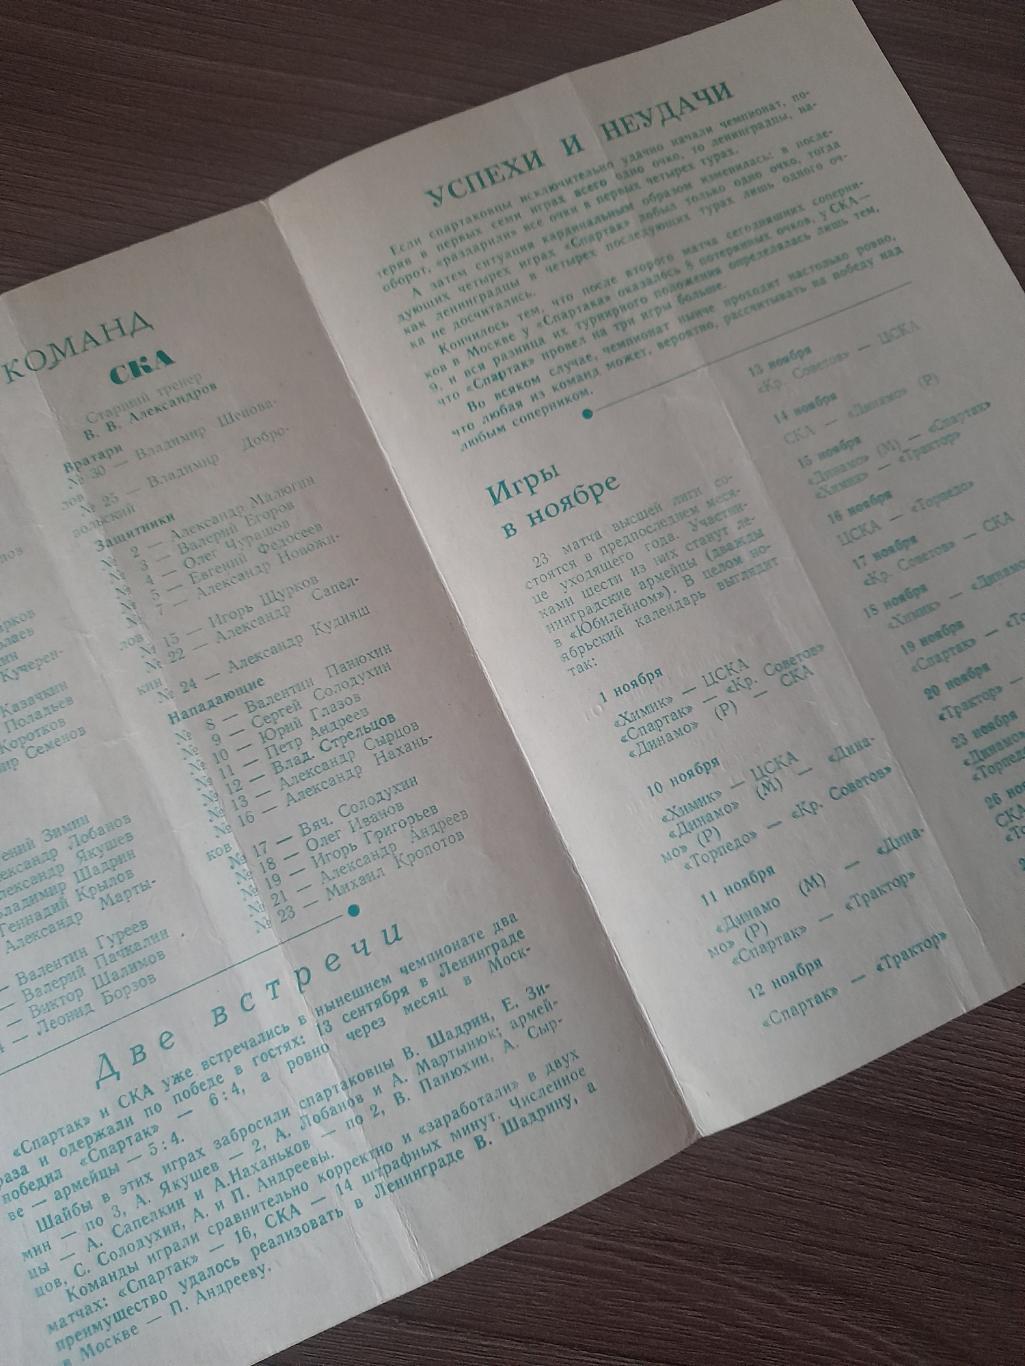 КОМАНД
СКА
Старший тренер
В. В. Александров
Вратари
№ 30 — Владимир Шепова-
лов
№ 25 — Владимир Добро-
вольский
Защитники
№ 2 — Александр Малюгин
№ 3 — Валерий Егоров
№ 4 — Олег Чурашов
№ 5 — Евгений Федосеев
№ 7 — Александр Новожи-
лов
№ 15 — Игорь Щурков
№ 22 — Александр Сапел-
кин
№ 24 — Александр Кудияш
Нападающие
№ 8 — Валентин Панюхин
№ 9 — Сергей Солодухин
№ 10 — Юрий Глазов
№ 11 — Петр Андреев
№ 12 — Влад. Стрельцов
№ 13 — Александр Сырцов
№ 16 — Александр Нахань-
ков
№ 17 — Вяч. Солодухин
№ 18 — Олег Иванов
№ 19 — Игорь Григорьев
№ 21 — Александр Андреев
№ 23 — Михаил Кропотов
Кучерен-
Казачкин
Поладьев
Коротков
Семенов
Зимин
Лобанов
Якушев
Владимир Шадрин
Геннадий Крылов
Александр Марты-
— Валентин Гуреев
— Валерий Пачкалин
— Виктор Шалимов
— Леонид Борзов
Две встречи
«Спартак» и СКА уже встречались в нынешнем чемпионате два
раза и одержали по победе в гостях: 13 сентября в Ленинграде
победил «Спартак» — 6:4, а ровно через месяц в Моск-
ве — армейцы — 5:4.
Шайбы в этих играх забросили спартаковцы В. Шадрин, Е. Зи-
мин — по 3, А. Якушев — 2, А. Лобанов и А. Мартынюк; армей-
цы — А. Сапелкин и А. Наханьков — по 2, В. Панюхин, А. Сыр-
цов, С. Солодухин, А. и П. Андреевы.
Команды играли сравнительно корректно и «заработали» в двух
матчах: «Спартак» — 16, СКА — 14 штрафных минут. Численное
преимущество удалось реализовать в Ленинграде В. Шадрину, а
в Москве — П. Андрееву.
УСПЕХИ И НЕУДАЧИ
Если спартаковцы исключительно удачно начали чемпионат, по-
теряв в первых семи играх всего одно очко, то ленинградцы, на-
оборот, «раздарили» все очки в первых четырех турах.
А затем ситуация кардинальным образом изменилась: в после-
дующих четырех играх «Спартак» добыл только одно очко, тогда
как ленинградцы в четырех последующих турах лишь одного оч-
ка не досчитались.
Кончилось тем, что после второго матча сегодняшних соперни-
ков в Москве у «Спартака» оказалось 8 потерянных очков, у СКА —
9, и вся разница их турнирного положения определялась лишь тем,
что «Спартак» провел на три игры больше.
Во всяком случае, чемпионат нынче проходит настолько ровно,
что любая из команд может, вероятно, рассчитывать на победу над
любым соперником.
Игры
в ноябре
23 матча высшей лиги со-
стоятся в предпоследнем меся-
це уходящего года. Участни-
ками шести из них станут ле-
нинградские армейцы (дважды
в «Юбилейном»). В целом но-
ябрьский календарь выглядит
так:
1 ноября
«Химик» — ЦСКА
«Спартак» — «Кр. Советов»
«Динамо» (Р) — СКА
10 ноября
«Химик» — ЦСКА
«Динамо» (М) — «Дина-
мо» (Р)
«Торпедо» — «Кр. Советов»
11 ноября
«Динамо (М) — «Дина-
мо» (Р)
«Спартак» — «Трактор»
12 ноября
«Спартак» — «Трактор»
13 ноября
«Кр. Советов» — ЦСКА
14 ноября
СКА — «Динамо» (Р)
15 ноября
«Динамо» (М) — «Спартак»
«Химик» — «Трактор»
16 ноября
ЦСКА — «Торпедо»
17 ноября
«Кр. Советов» — СКА
18 ноября
«Химик» — «Динамо»
19 ноября
«Спартак» —
20 ноября
«Трактор» —
23 ноября
«Динамо»
«Торпедо»
26
СКА